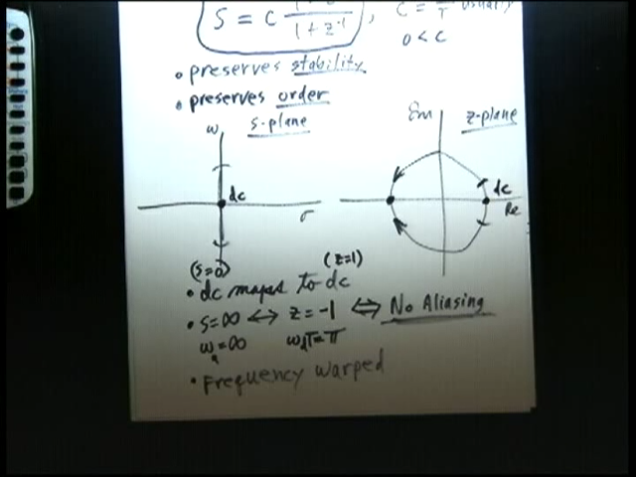 S = C 1 + z⁻¹ , C = T usually
0 < C
• preserves stability
• preserves order
ω s-plane Im z-plane
dc dc
σ Re
(s=0) (z=1)
• dc maps to dc
• s=∞ ↔ z = -1 ⇔ No Aliasing
ωₐ=∞ ω_dT=π
• Frequency warped